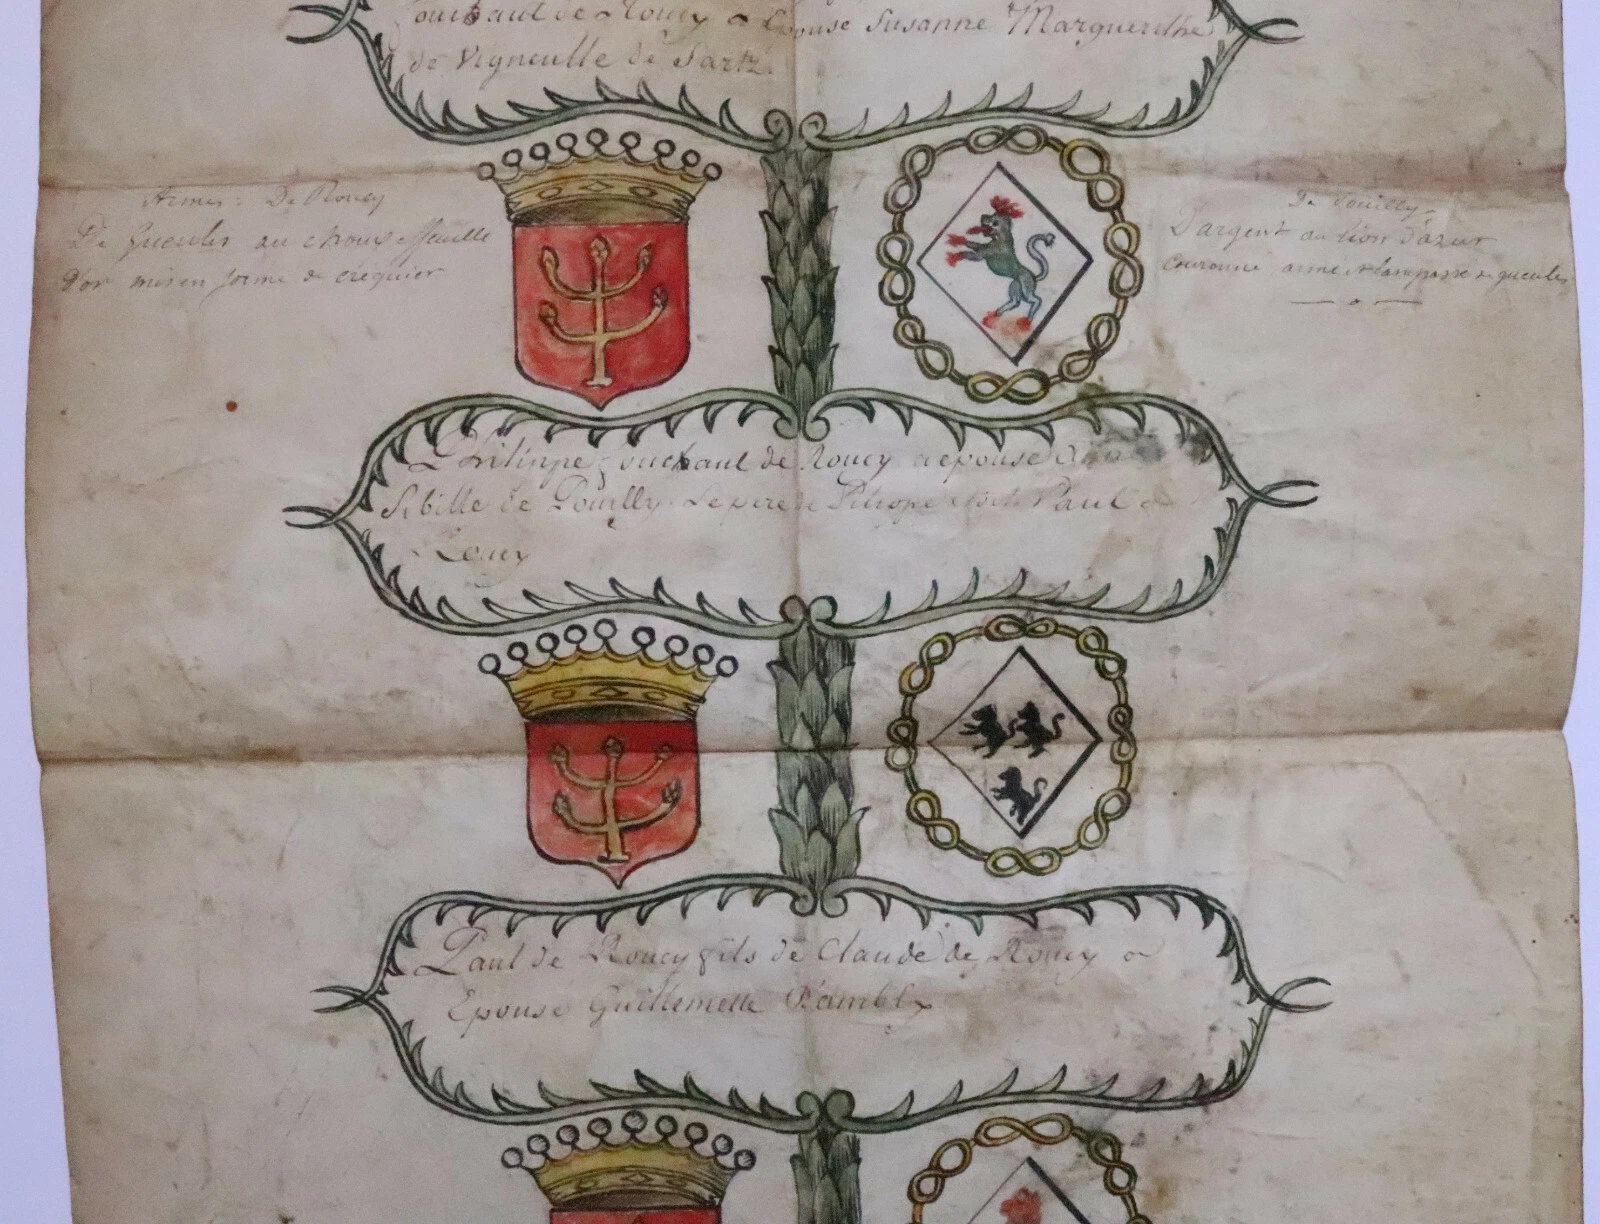 de Roucy a Epouse Susanne Marguerithe
de Vigneulle de Sartz.
Armes: De Roucy
De Gueules au choux effeuillé
d'or mis en forme de créquier
De Pouilly
D'argent au lion d'azur
couronné armé et lampassé de gueules
Philippe fouchaut de Roucy a epousé
Sibille de Pouilly. Le pere de Paul de
Roucy
Paul de Roucy fils de Claude de Roucy a
Epousé Guillemette